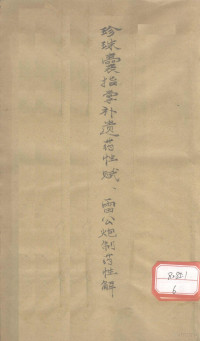 珍珠囊指掌补遗药性赋、雷公炮制药性解